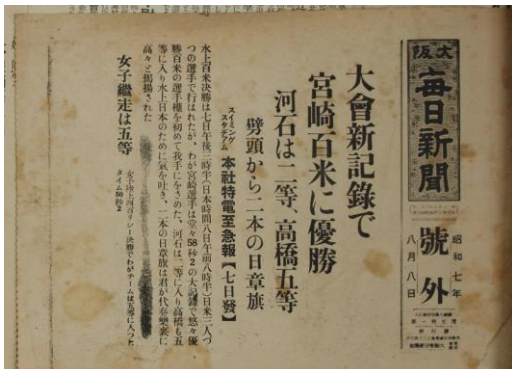 大阪
毎日新聞
號外
昭和七年
八月八日
大會新記錄で
宮崎百米に優勝
河石は二等、高橋五等
劈頭から二本の日章旗
スイミング
スタデアム
本社特電至急報【七日發】
水上百米決勝は七日午後二時半(日本時間八日午前八時半)日米三人づ
つの選手で行はれたが、わが宮崎選手は堂々58秒2の大記錄で悠々優
勝百米の選手權を初めて我手にをさめた、河石は二等に入り高橋も五
等に入り水上日本のために氣を吐き、二本の日章旗は君が代奏樂裏に
高々と揭揚された
女子繼走は五等
女子陸上四百リレー決勝でわがチームは五等に入つた
タイム50秒2